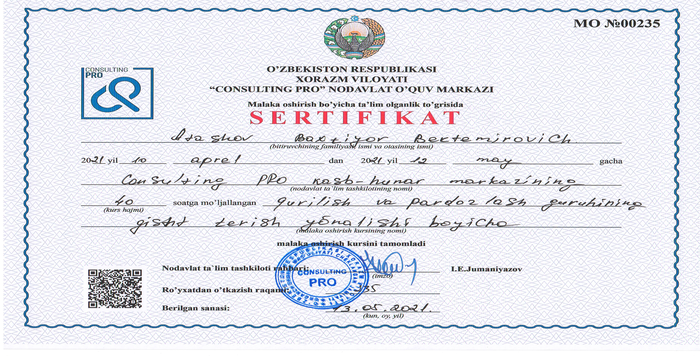 MO №00235
CONSULTING
PRO
O'ZBEKISTON RESPUBLIKASI
XORAZM VILOYATI
"CONSULTING PRO" NODAVLAT O'QUV MARKAZI
Malaka oshirish bo'yicha ta'lim olganlik to'grisida
SERTIFIKAT
Atashov Baxtiyor Bektemirovich
(bitiruvchining familiyasi ismi va otasining ismi)
2021 yil 10 aprel dan 2021 yil 12 may gacha
Consulting PRO kasb-hunar markazining
(nodavlat ta'lim tashkilotining nomi)
40 soatga mo'ljallangan qurilish va pardozlash guruhining
(kurs hajmi)
gisht terish yõnalishi boyicha
(malaka oshirish kursining nomi)
malaka oshirish kursini tamomladi
Nodavlat ta'lim tashkiloti rahbari: I.E.Jumaniyazov
(imzo)
CONSULTING
PRO
Ro'yxatdan o'tkazish raqami: 235
Berilgan sanasi: 13.05.2021.
(kun, oy, yil)